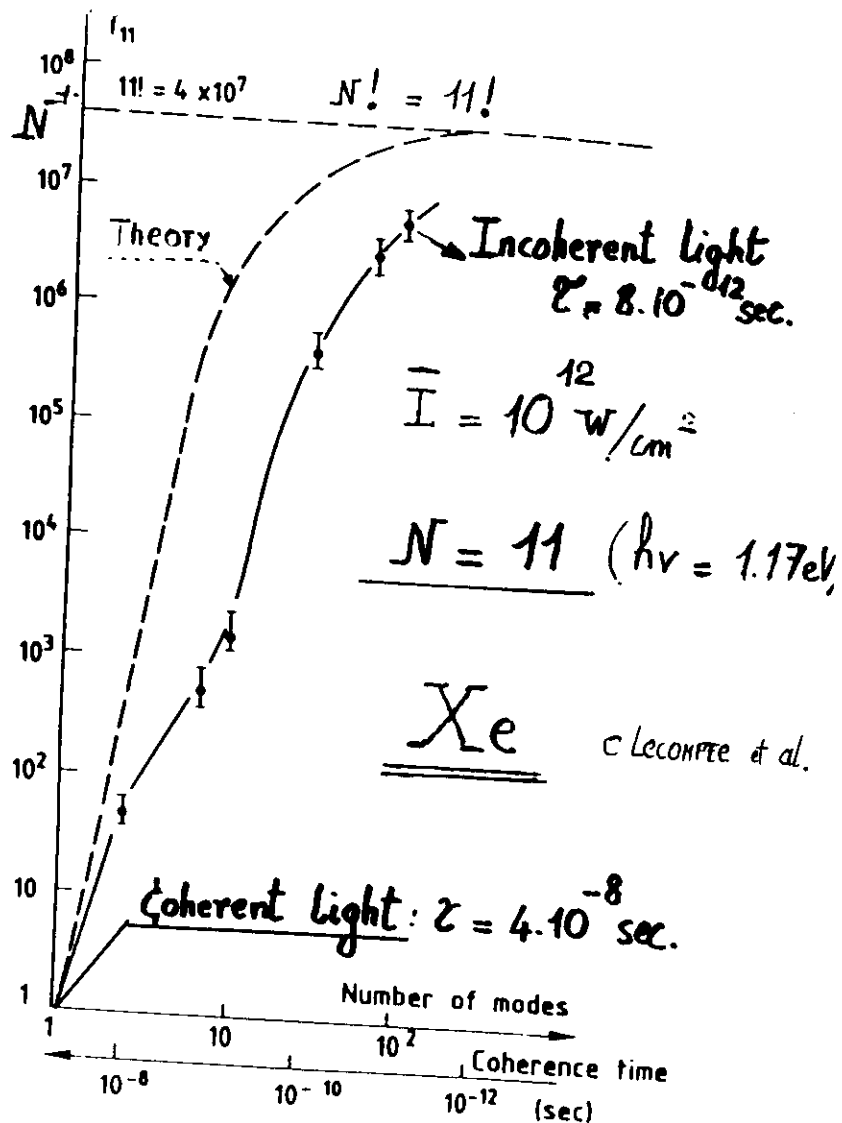 f₁₁
10⁸
11! = 4 ×10⁷
N! = 11!
10⁷
Theory
Incoherent light
τ = 8.10⁻¹² sec.
10⁶
Ī = 10¹² W/cm²
10⁵
10⁴
N = 11 (hν = 1.17eV,
10³
Xe
C LECOMPTE et al.
10²
10
Coherent light: τ = 4.10⁻⁸ sec.
1
Number of modes
1 10 10²
Coherence time
10⁻⁸ 10⁻¹⁰ 10⁻¹² (sec)